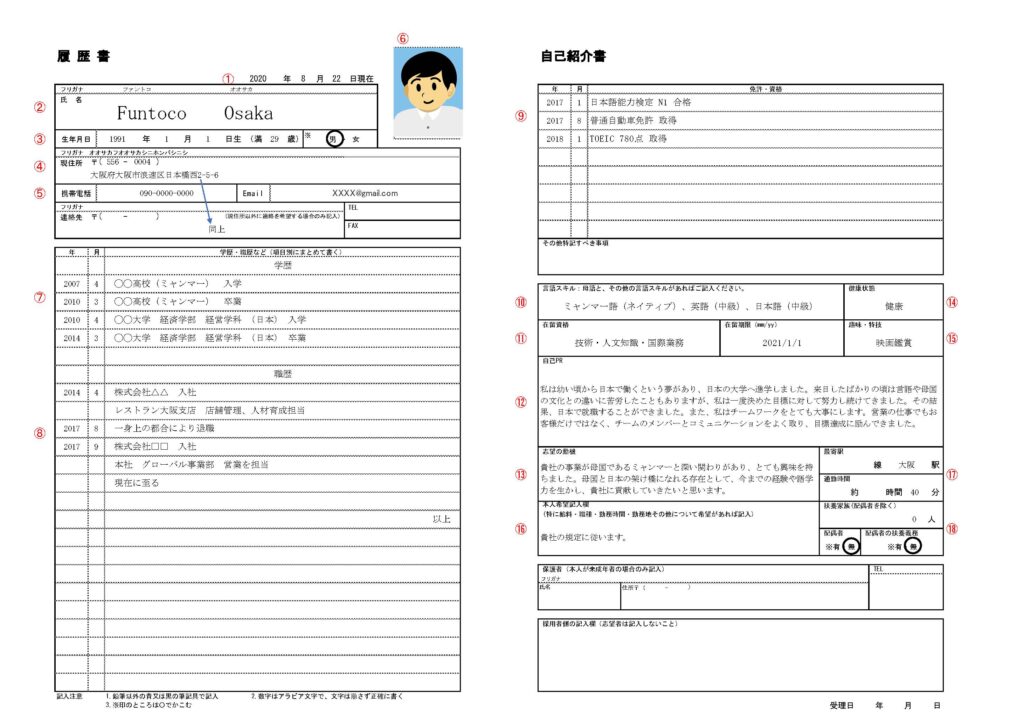 ⑥
履 歴 書
① 2020 年 8 月 22 日現在
フリガナ ファントコ オオサカ
② 氏 名
Funtoco Osaka
③ 生年月日 1991 年 1 月 1 日生 (満 29 歳) ※ 男 ・ 女
フリガナ オオサカフオオサカシニホンバシニシ
④ 現住所 〒( 556 - 0004 )
大阪府大阪市浪速区日本橋西2-5-6
⑤ 携帯電話 090-0000-0000 Email XXXX@gmail.com
フリガナ TEL
連絡先 〒( - ) (現住所以外に連絡を希望する場合のみ記入)
同上 FAX
年 月 学歴・職歴など(項目別にまとめて書く)
学歴
⑦ 2007 4 〇〇高校(ミャンマー) 入学
2010 3 〇〇高校(ミャンマー) 卒業
2010 4 〇〇大学 経済学部 経営学科 (日本) 入学
2014 3 〇〇大学 経済学部 経営学科 (日本) 卒業
職歴
2014 4 株式会社△△ 入社
レストラン大阪支店 店舗管理、人材育成担当
⑧ 2017 8 一身上の都合により退職
2017 9 株式会社□□ 入社
本社 グローバル事業部 営業を担当
現在に至る
以上
記入注意 1.鉛筆以外の青又は黒の筆記具で記入 2.数字はアラビア文字で、文字は崩さず正確に書く
3.※印のところは〇でかこむ
自己紹介書
年 月 免許・資格
⑨ 2017 1 日本語能力検定 N1 合格
2017 8 普通自動車免許 取得
2018 1 TOEIC 780点 取得
その他特記すべき事項
言語スキル:母語と、その他の言語スキルがあればご記入ください。 健康状態
⑩ ミャンマー語(ネイティブ)、英語(中級)、日本語(中級) 健康 ⑭
在留資格 在留期限(mm/yy) 趣味・特技
⑪ 技術・人文知識・国際業務 2021/1/1 映画鑑賞 ⑮
自己PR
⑫
私は幼い頃から日本で働くという夢があり、日本の大学へ進学しました。来日したばかりの頃は言語や母国
の文化との違いに苦労したこともありますが、私は一度決めた目標に対して努力し続けてきました。その結
果、日本で就職することができました。また、私はチームワークをとても大事にします。営業の仕事でもお
客様だけではなく、チームのメンバーとコミュニケーションをよく取り、目標達成に励んできました。
志望の動機
⑬
貴社の事業が母国であるミャンマーと深い関わりがあり、とても興味を持
ちました。母国と日本の架け橋になれる存在として、今までの経験や語学
力を生かし、貴社に貢献していきたいと思います。
最寄駅
線 大阪 駅
⑰
通勤時間
約 時間 40 分
本人希望記入欄
(特に給料・職種・勤務時間・勤務地その他について希望があれば記入)
⑯
貴社の規定に従います。
扶養家族(配偶者を除く)
0 人
⑱
配偶者 配偶者の扶養義務
※有・無 ※有・無
保護者(本人が未成年者の場合のみ記入) TEL
フリガナ
氏名 住所〒( - )
採用者側の記入欄(志望者は記入しないこと)
受理日 年 月 日